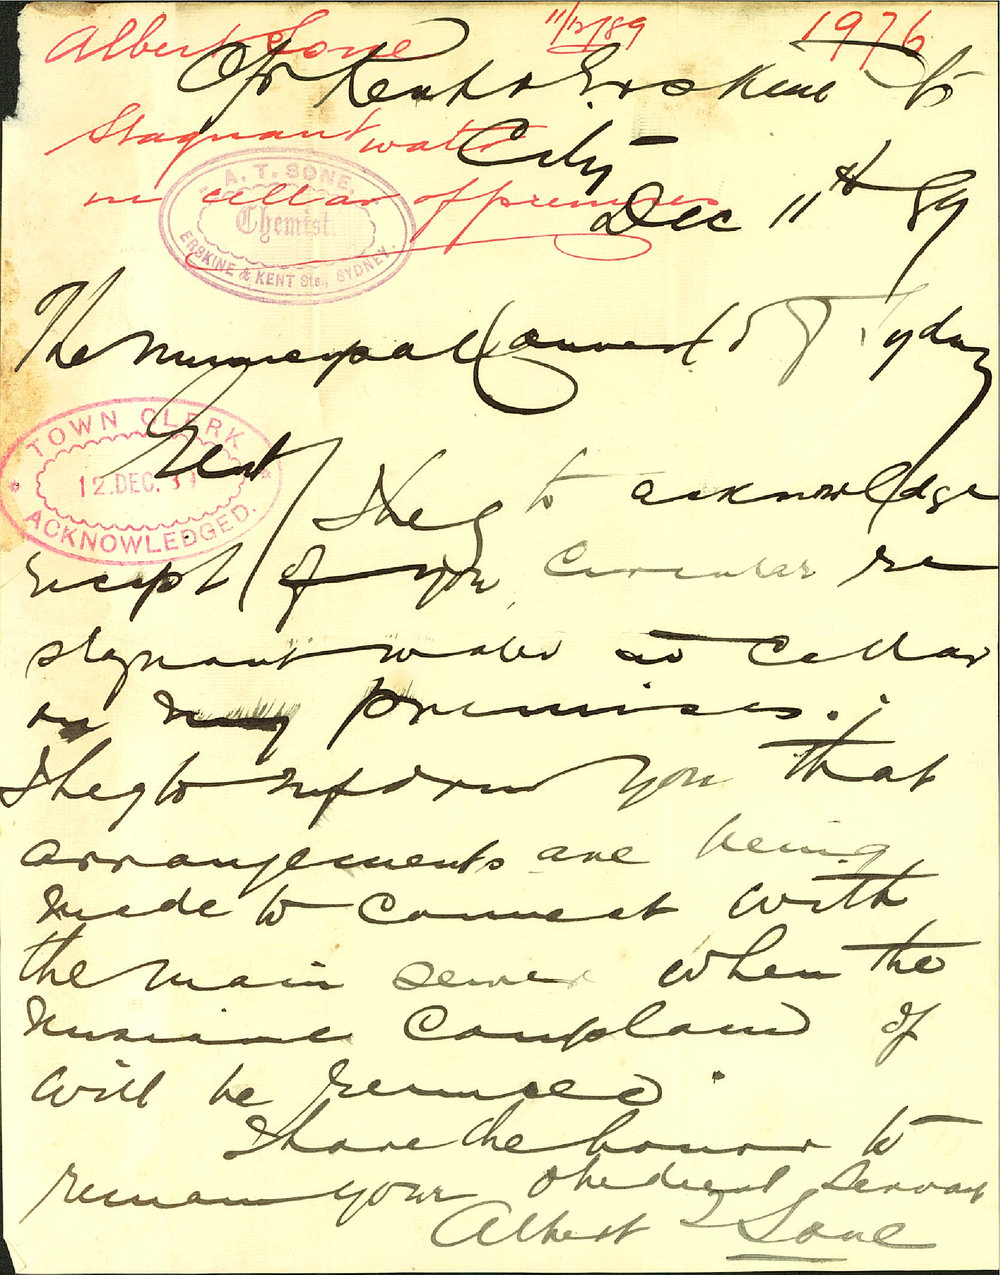 Albert Sone 11/12/89 1976
Cr Kent & Erskine St
Stagnant water
City
in cellar of premises
Dec 11th 89
A. T. SONE,
Chemist.
ERSKINE & KENT Sts., SYDNEY.
The Municipal Council of Sydney
TOWN CLERK
12.DEC.
ACKNOWLEDGED.
Gent
I beg to acknowledge
receipt of your Circular re
stagnant water in Cellar
on my premises.
I beg to inform you that
arrangements are being
made to connect with
the main sewer when the
nuisance complained of
will be removed.
I have the honour to
remain your obedient servant
Albert T Sone